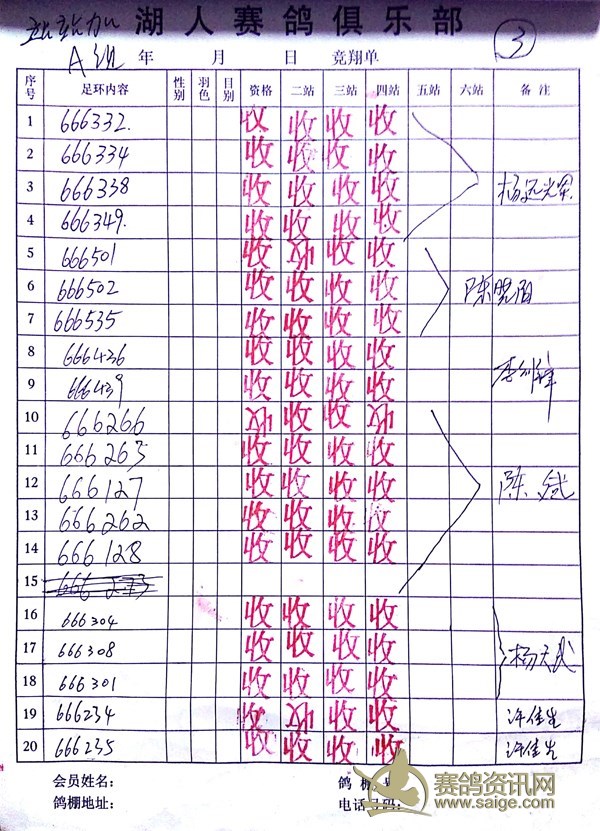 站站加 湖人赛鸽俱乐部 ③
A组 年 月 日 竞翔单
序号 足环内容 性别 羽色 目别 资格 二站 三站 四站 五站 六站 备注
1 666332. 收 收 收 收
2 666334 收 收 收 收
3 666338 收 收 收 收
4 666349. 收 收 收 收
5 666501 收 收 收 收
6 666502 收 收 收 收 陈晓阳
7 666535 收 收 收 收
8 666436 收 收 收 收
9 666439 收 收 收 收
10 666266 收 收 收 收
11 666263 收 收 收 收
12 666127 收 收 收 收 陈斌
13 666262 收 收 收 收
14 666128 收 收 收 收
15
16 666304 收 收 收 收
17 666308 收 收 收 收 杨天武
18 666301 收 收 收 收
19 666234 收 收 收 收 许佳生
20 666235 收 收 收 收 许佳生
会员姓名: 鸽棚
鸽棚地址: 电话号码:
赛鸽资讯网
www.saige.com